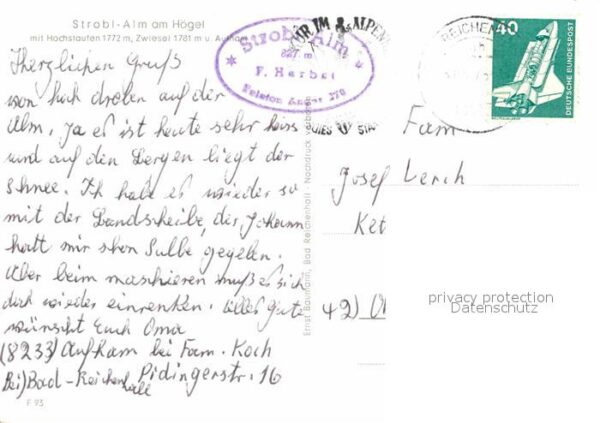 Strobl-Alm am Högel
mit Hochstaufen 1772 m, Zwiesel 1781 m u.
Herzlichen Gruß
von hoch droben auf der
Alm, ja es ist heute sehr
und auf den Bergen liegt der
Schnee. Ich habe es wieder so
mit der Bandscheibe, der Johann
hatt mir schon Salbe gegeben.
Aber beim maschieren muß es sich
doch wieder einrenken. Alles Gute
wünscht Euch Oma
(8233) Aufham bei Fam. Koch
Bei) Bad-Reichenhall Pidingerstr. 16
F 93
* Strobl-Alm *
F. Herbst
Telefon Anger 270
Ernst Baumann, Bad Reichenhall - Nachdruck verboten
KUR IM ALPEN
REICHEN
40
DEUTSCHE BUNDESPOST
Fam
Josef Lerch
Ket
42)
privacy protection
Datenschutz